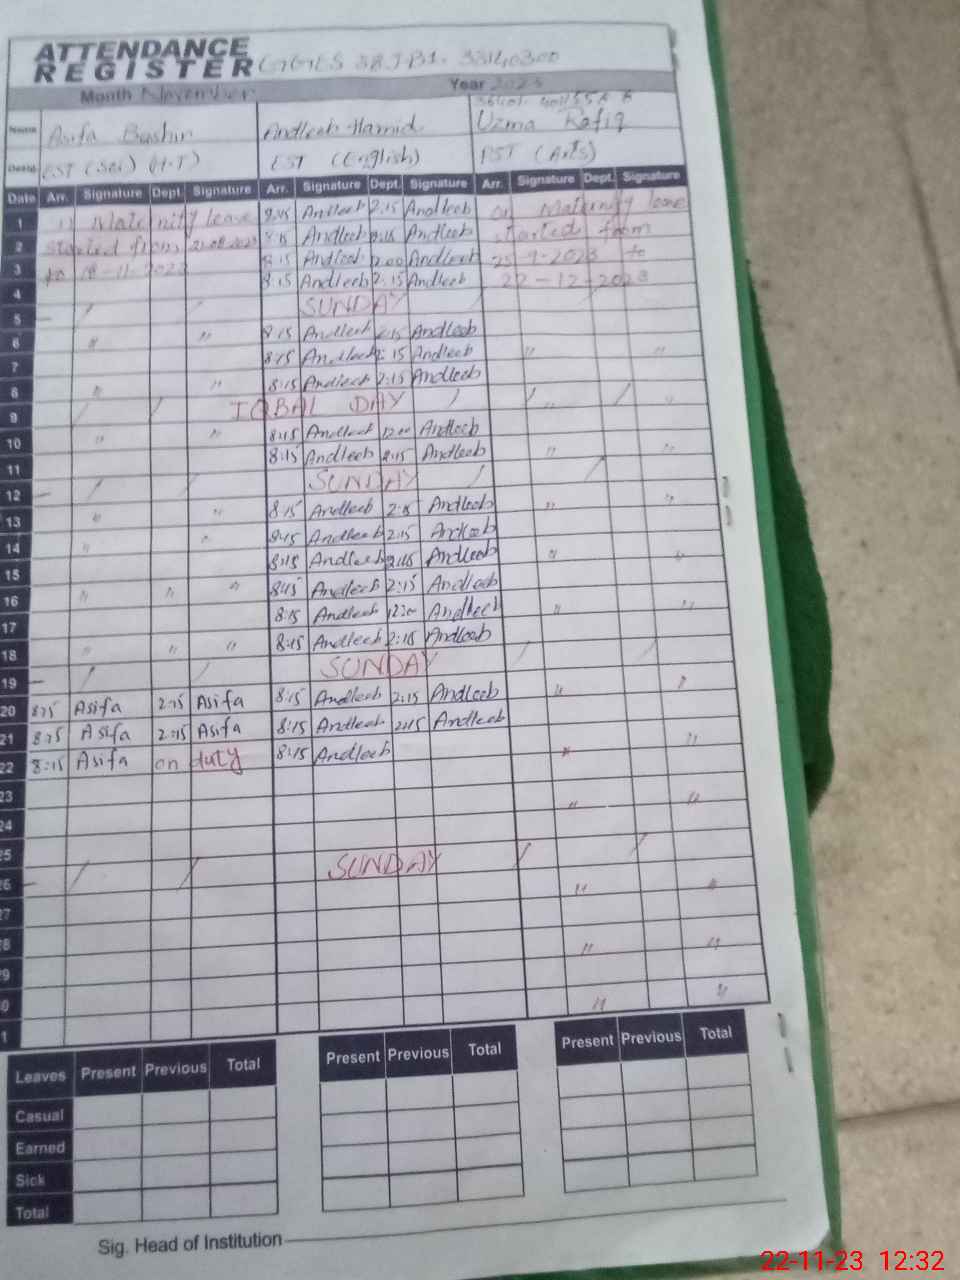 ATTENDANCE
REGISTER GGES 38JB1. 33140300
Month November Year 2023
Name Asifa Bashir Andleeb Hamid Uzma Rafiq
Desig. EST (Sci) (H.T) EST (English) PST (Arts)
Date Arr. Signature Dept. Signature Arr. Signature Dept. Signature Arr. Signature Dept. Signature
1 Maternity leave 8:15 Andleeb 2:15 Andleeb on Maternity leave
2 started from 8:15 Andleeb 2:15 Andleeb started from
3 to 18-11-2023 8:15 Andleeb 12:00 Andleeb 25-9-2023 to
4 8:15 Andleeb 2:15 Andleeb 22-12-2023
5 SUNDAY
6 " " 8:15 Andleeb 2:15 Andleeb
7 8:15 Andleeb 2:15 Andleeb " "
8 " " 8:15 Andleeb 2:15 Andleeb
9 IQBAL DAY " "
10 " " 8:15 Andleeb 12:00 Andleeb
11 8:15 Andleeb 2:15 Andleeb " "
12 SUNDAY
13 " " 8:15 Andleeb 2:15 Andleeb " "
14 " " 8:15 Andleeb 2:15 Andleeb
15 8:15 Andleeb 2:15 Andleeb " "
16 " " " 8:15 Andleeb 2:15 Andleeb
17 8:15 Andleeb 12:00 Andleeb " "
18 " " " 8:15 Andleeb 2:15 Andleeb
19 SUNDAY
20 8:15 Asifa 2:15 Asifa 8:15 Andleeb 2:15 Andleeb " "
21 8:15 Asifa 2:15 Asifa 8:15 Andleeb 2:15 Andleeb
22 8:15 Asifa on duty 8:15 Andleeb " "
23
24 " "
25
26 SUNDAY
27 " "
28
29 " "
30
31 " "
Leaves Present Previous Total Present Previous Total Present Previous Total
Casual
Earned
Sick
Total
Sig. Head of Institution
22-11-23 12:32